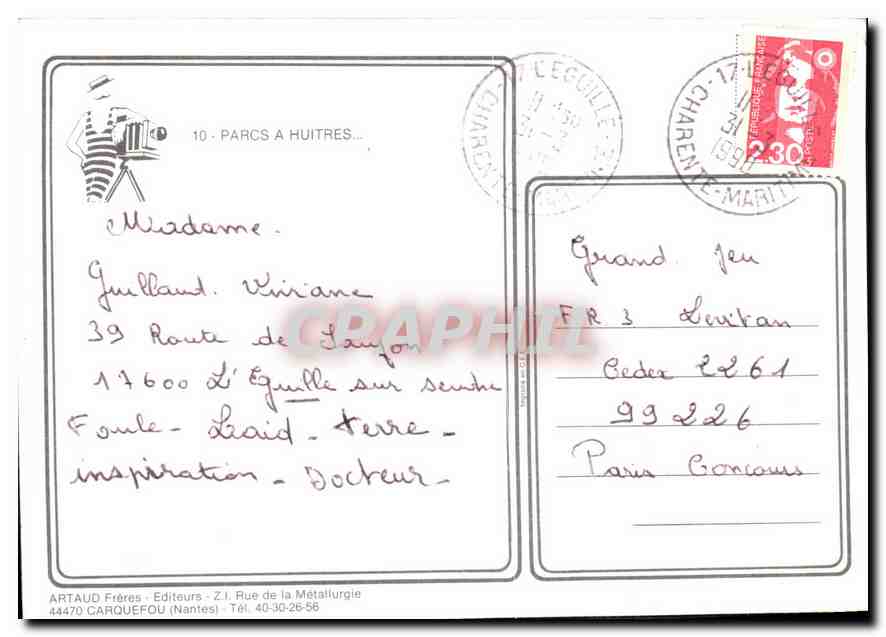 10 - PARCS A HUITRES...
Madame.
Guillaud. Viviane
39 Route de Saujon
17600 L'Eguille sur seudre
Foule - Laid - terre -
inspiration - Docteur -
ARTAUD Frères - Editeurs - Z.I. Rue de la Métallurgie
44470 CARQUEFOU (Nantes) - Tél. 40-30-26-56
17-L'EGUILLE
CHARENTE-
17-L'EGUILLE
31
1990
CHARENTE-MARITIME
RÉPUBLIQUE FRANÇAISE
LA POSTE
2,30
Grand Jeu
FR3 Levitan
Cedex 2261
99226
Paris Concours
CPAPHIL